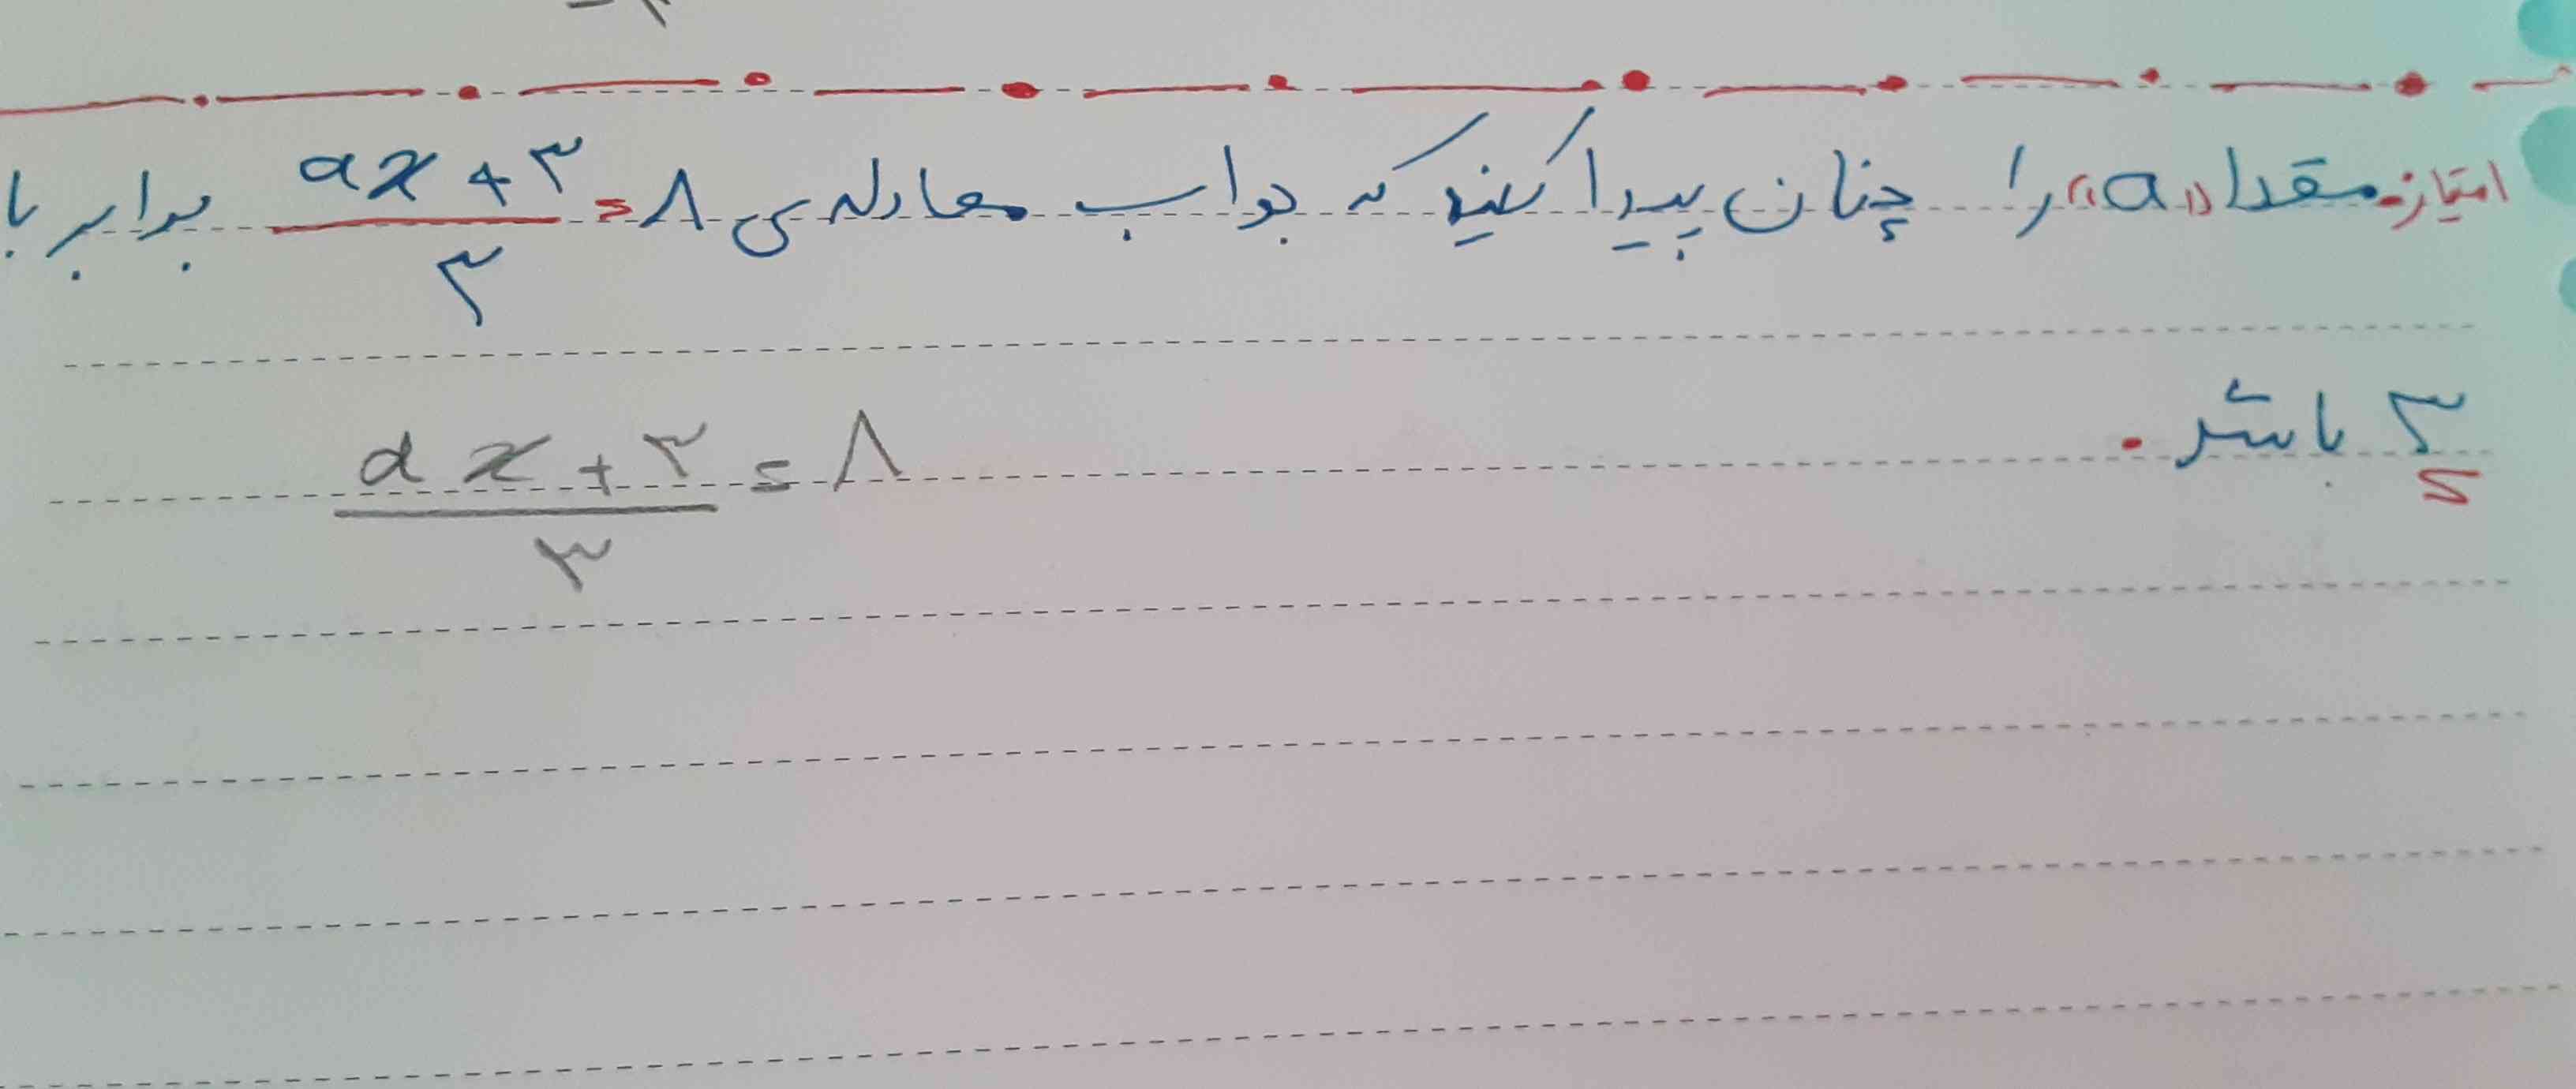 امتیاز. مقدار «a» را چنان پیدا کنید که جواب معادله ی ax + ۳ / ۳ = ۸ برابر با
۳ باشد.
ax + ۳ / ۳ = ۸